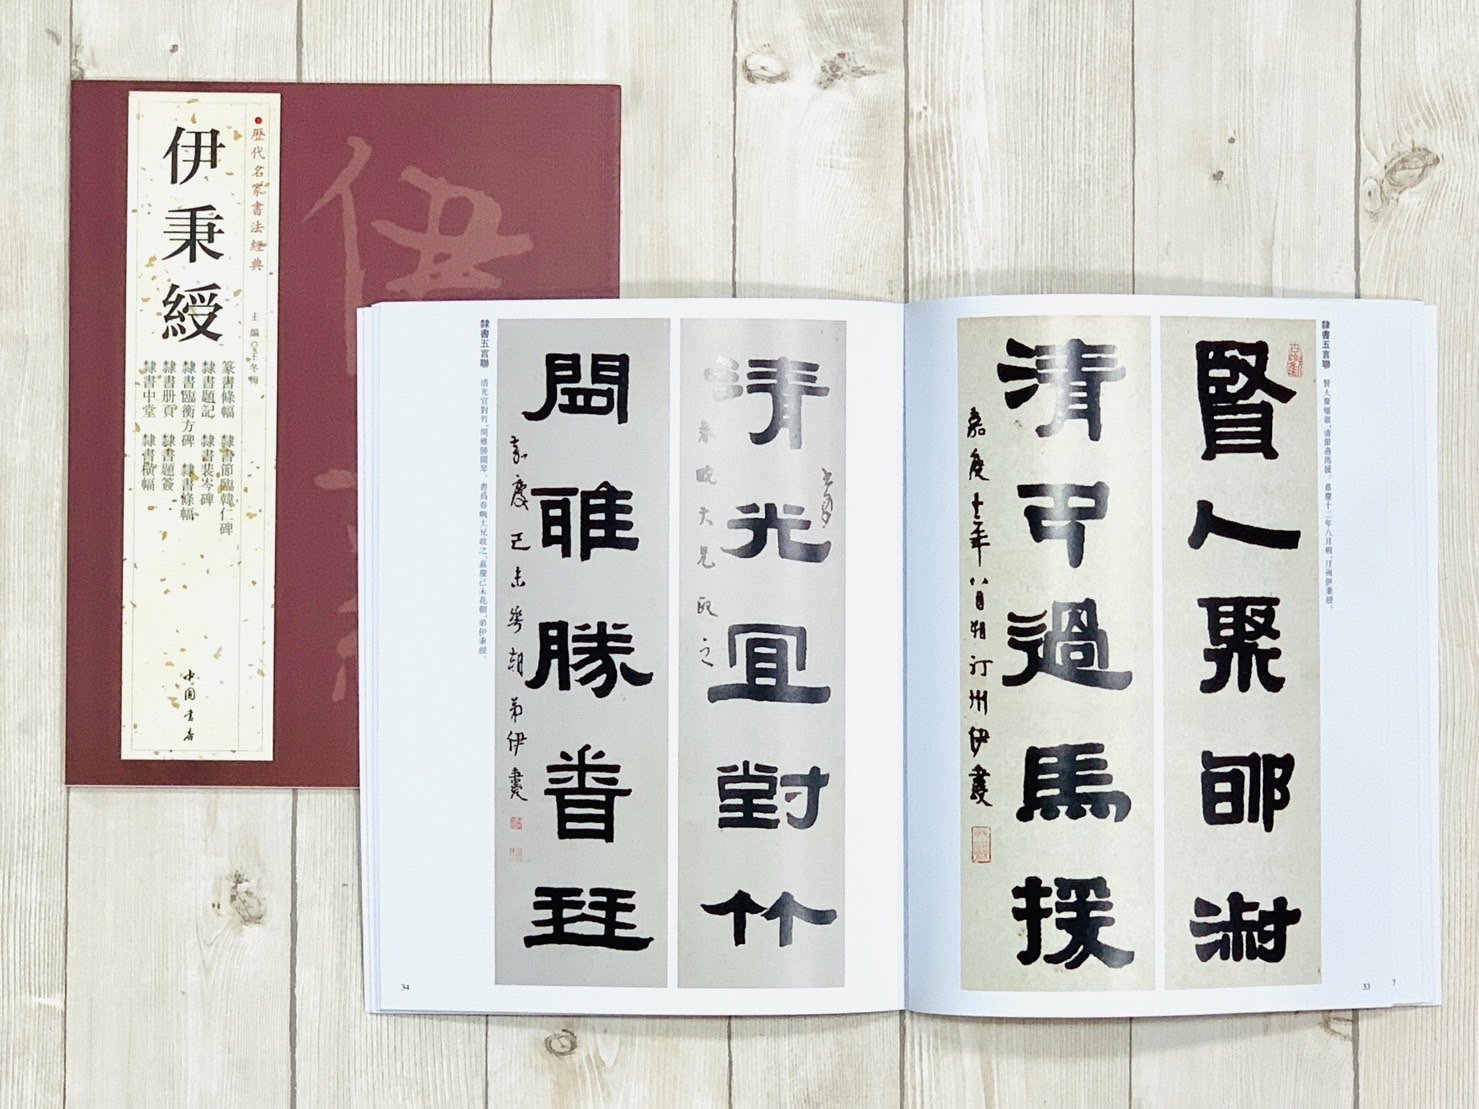 歷代名家書法經典
主編◎王冬梅
伊秉綬
篆書條幅 隸書節臨韓仁碑
隸書題記 隸書裴岑碑
隸書臨衡方碑 隸書條幅
隸書册頁 隸書題簽
隸書中堂 隸書橫幅
中国书店
隸書五言聯
賢人聚郇淑
清節過馬援
嘉慶十二年八月朔汀州伊秉綬
33
7
清光宜對竹
春晼大兄政之
閒雅勝聞琴
嘉慶己未花朝弟伊秉綬
隸書五言聯 清光宜對竹,閒雅勝聞琴。書爲春晼大兄政之,嘉慶己未花朝,弟伊秉綬。
34